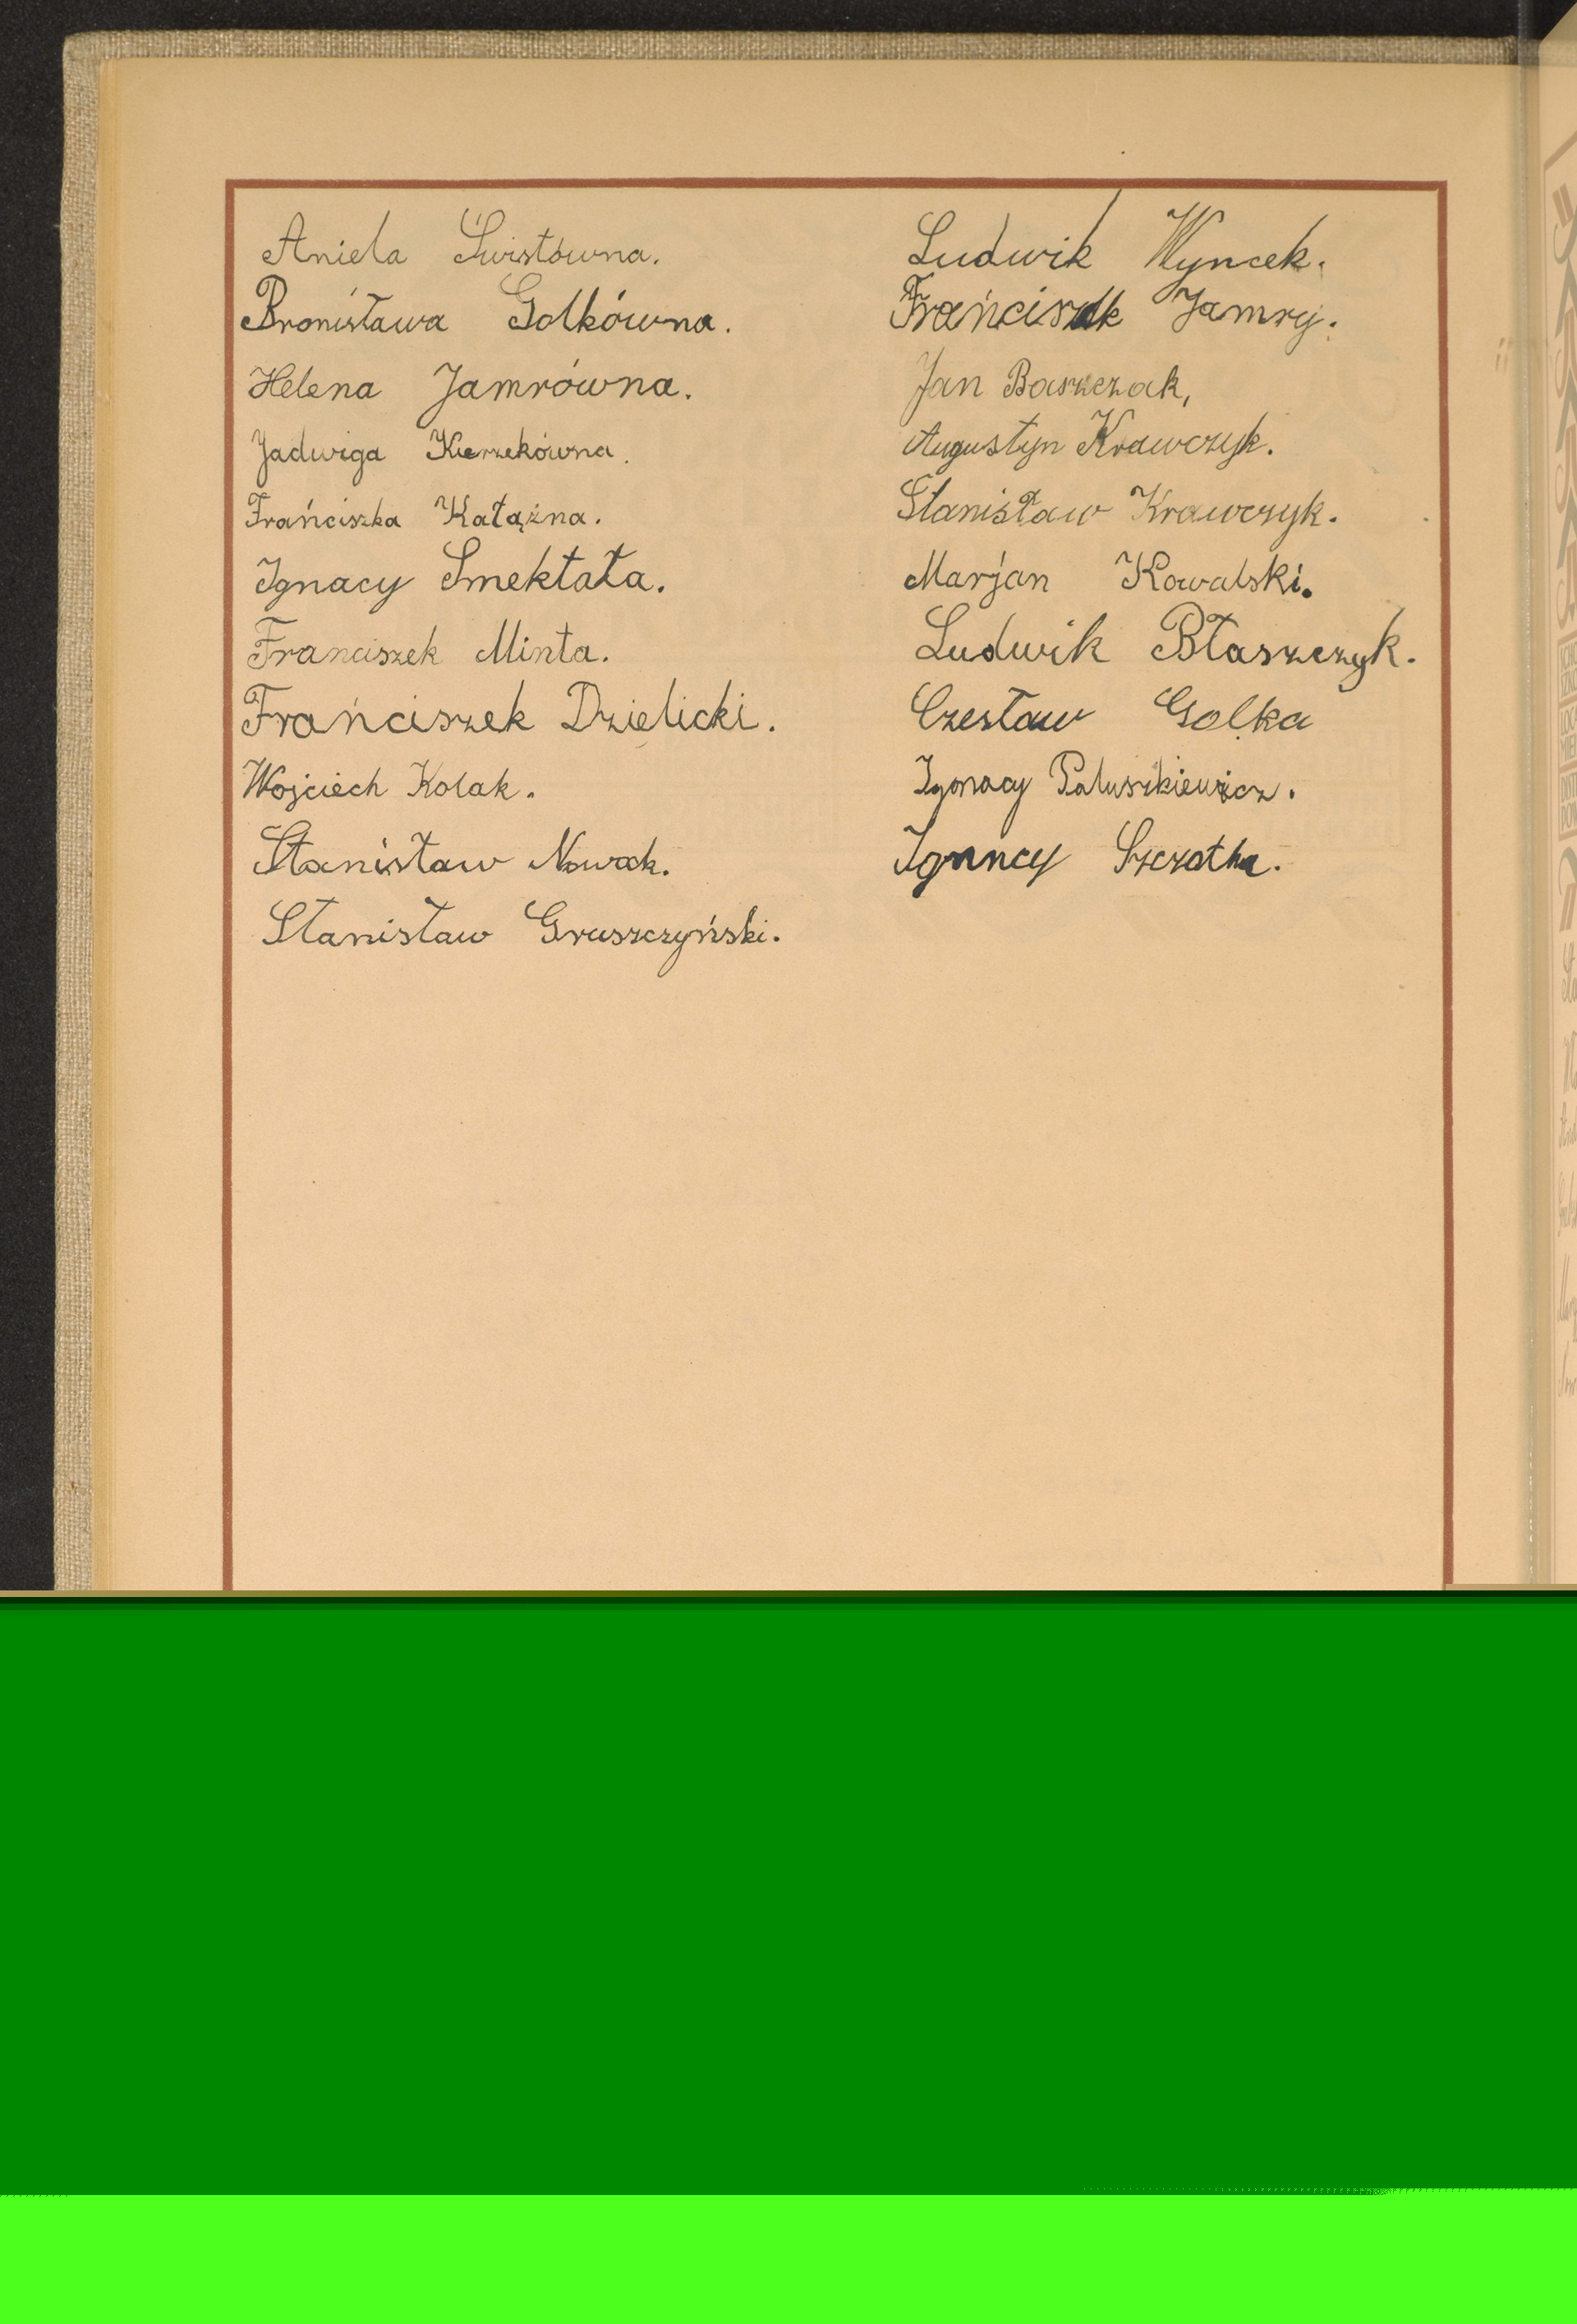 Aniela Świstówna.
Bronisława Golkówna.
Helena Jamrówna.
Jadwiga Kierzekówna.
Frańciszka Kałążna.
Ignacy Smektała.
Franciszek Minta.
Frańciszek Dzielicki.
Wojciech Kolak.
Stanisław Nowak.
Stanisław Gruszczyński.
Ludwik Wyncek.
Frańciszek Jamry.
Jan Baszczak,
Augustyn Krawczyk.
Stanisław Krawczyk.
Marjan Kowalski.
Ludwik Błaszczyk.
Czesław Golka
Ignacy Paluszkiewicz.
Ignacy Szczotka.